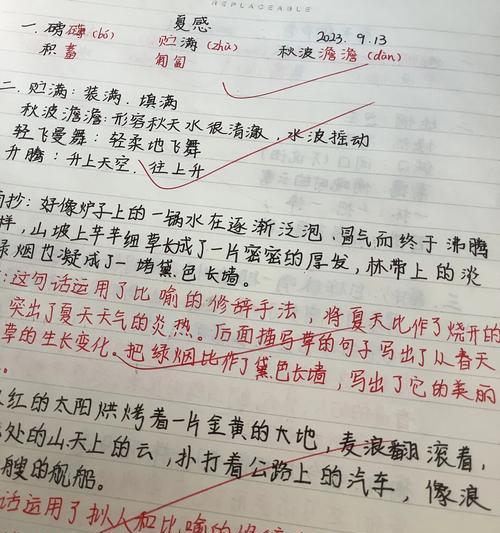 REPLACEABLE
夏感
2023. 9.13
一. 磅礴(bó) 贮满(zhù) 秋波澹澹(dàn)
积蓄 匍匐
二. 贮满: 装满. 填满
秋波澹澹: 形容秋天水很清澈, 水波摇动
轻飞曼舞: 轻柔地飞舞
升腾: 升上天空. 往上升
抄: 好像炉子上的一锅水在逐渐泛泡、冒气而终于沸腾
样, 山坡上芊芊细草长成了一片密密的厚发, 林带上的淡
绿烟也凝成了一堵黛色长墙。
: 这句话运用了比喻的修辞手法, 将夏天比作了烧开的
突出了夏天天气的炎热。后面描写草的句子写出了从春天
草的生长变化。把绿烟比作了黛色长墙, 写出了它的美丽
。
红的太阳烘烤着一片金黄的大地, 麦浪翻滚着,
处的山天上的云, 扑打着公路上的汽车, 像浪
艘的舰船。
话运用了拟人和比喻的修辞